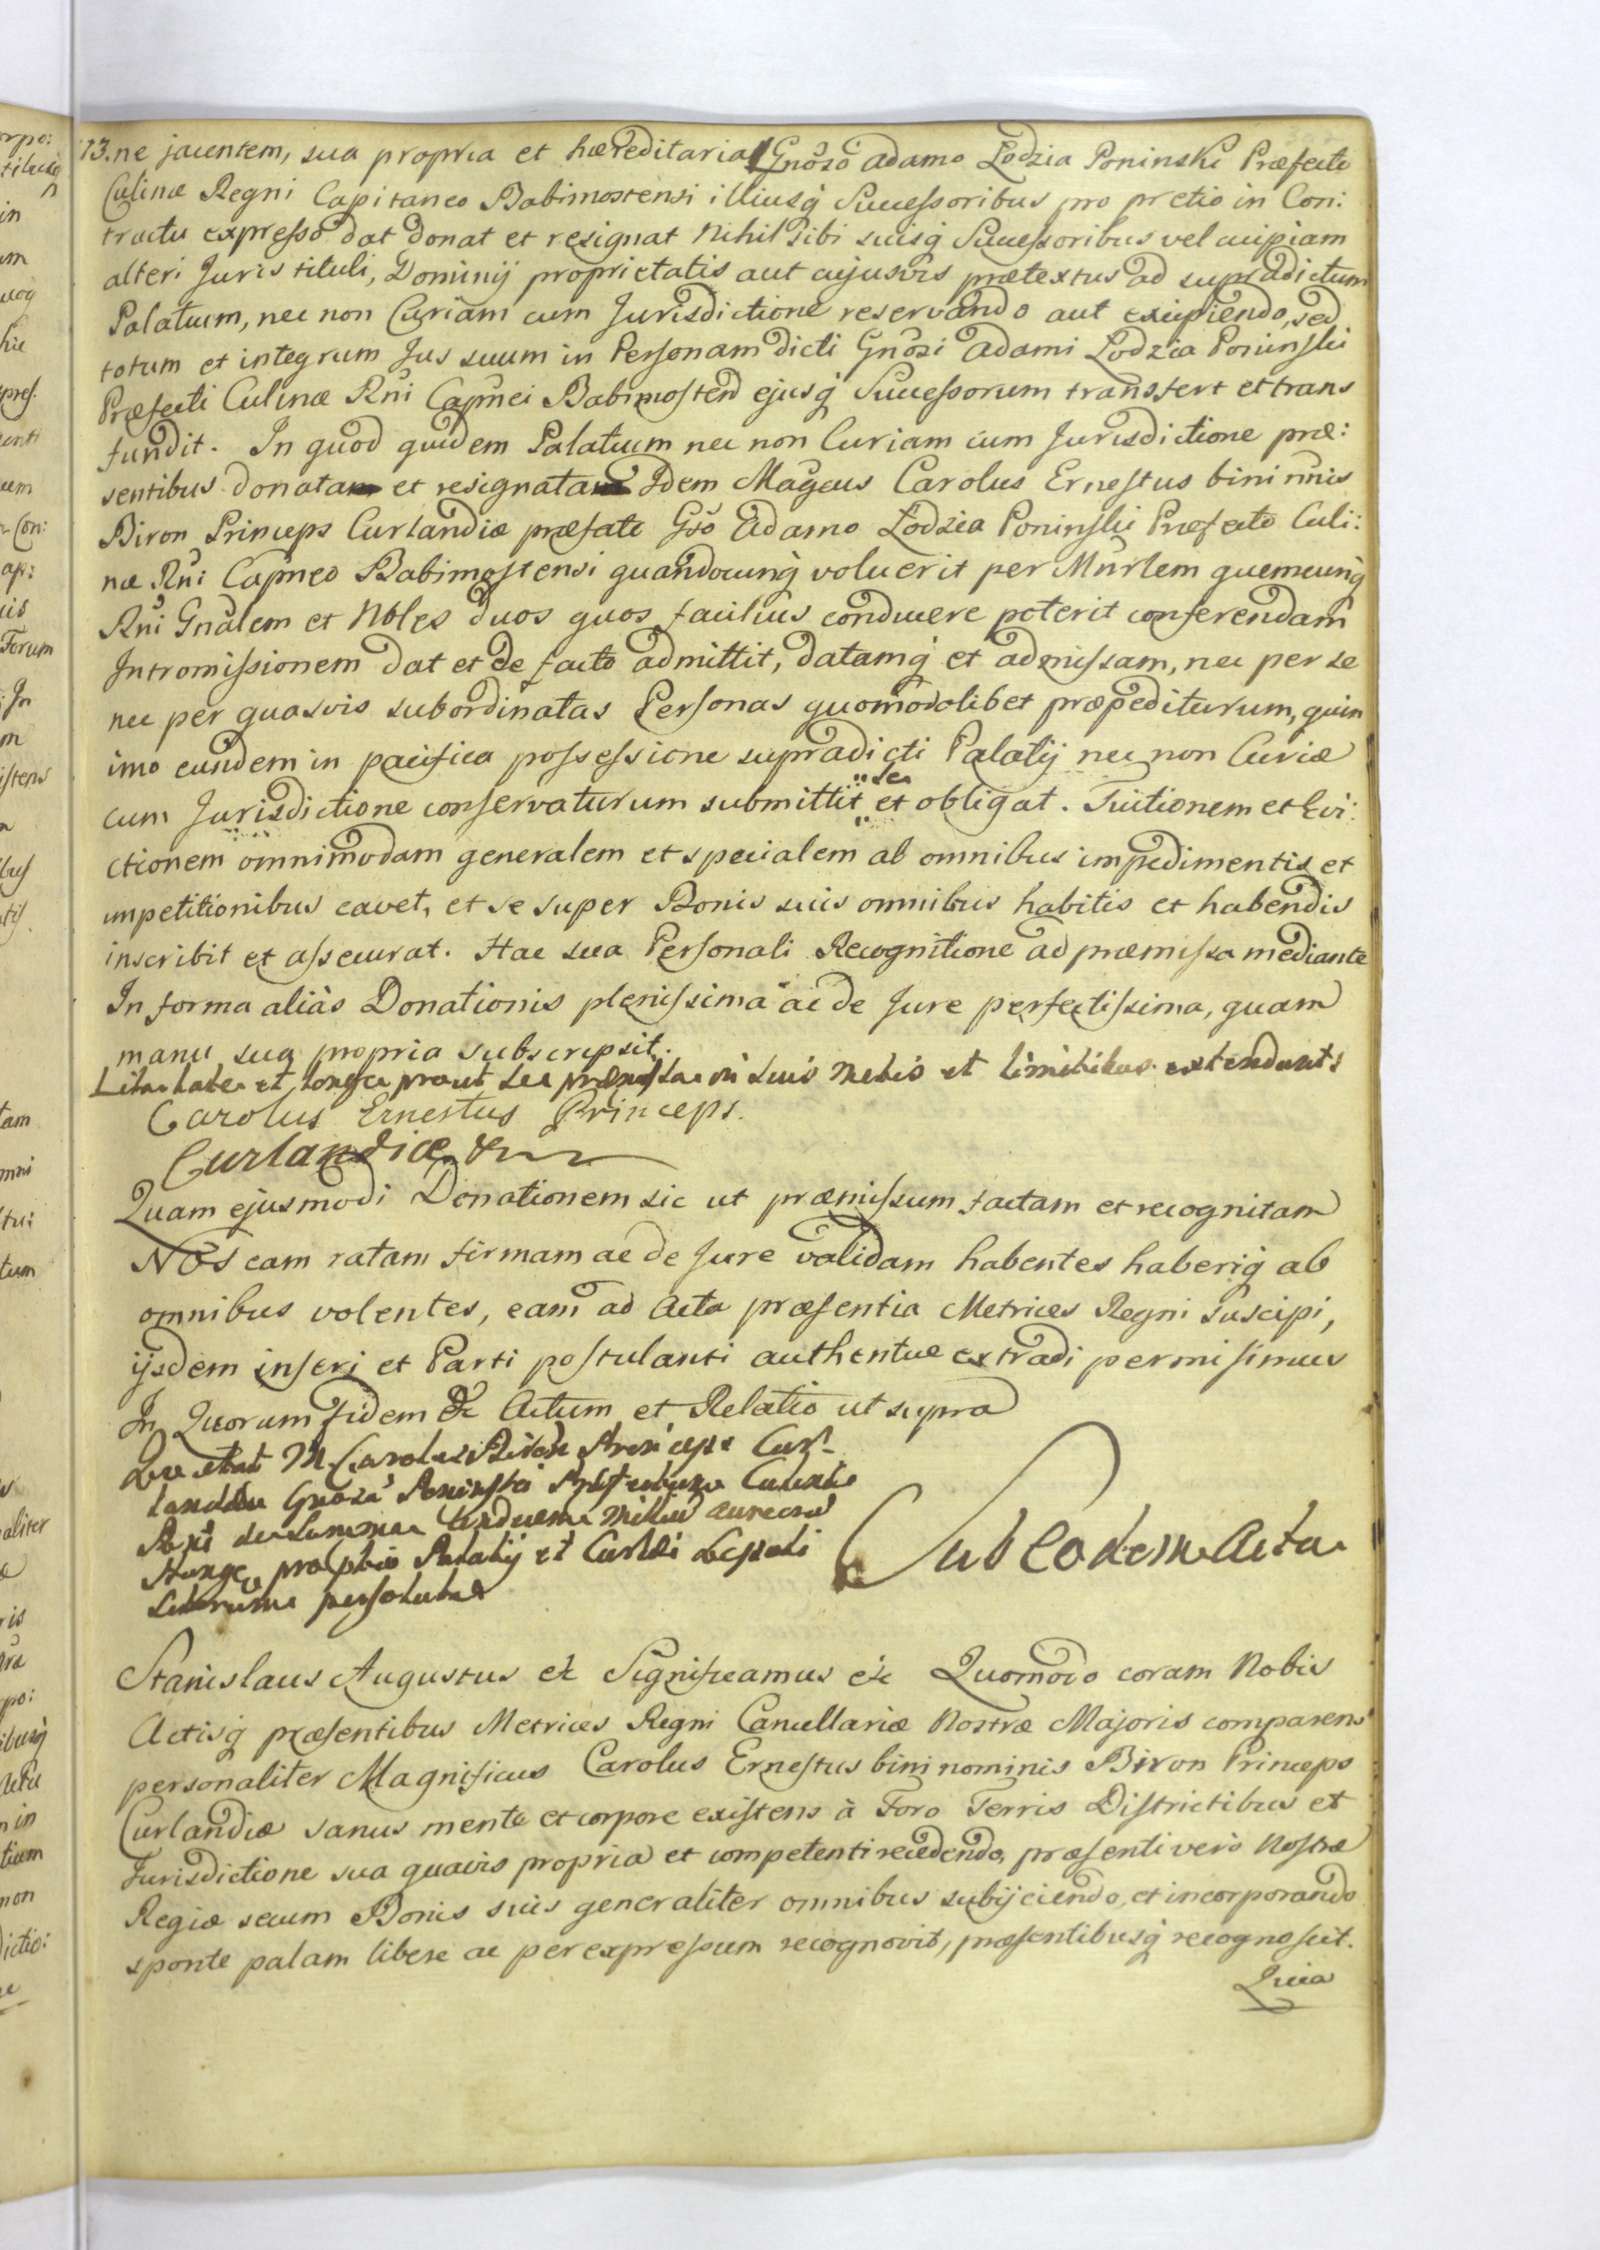 173. ne jacentem, sua propria et hæreditaria Gnoso Adamo Lodzia Poninski Præfecto
Culinæ Regni Capitaneo Babimostensi illiusq Successoribus pro pretio in Con:
tractu expresso dat donat et resignat Nihil sibi suisq Successoribus vel cuipiam
alteri Juris tituli, Dominij proprietatis aut cujusvis prætextus ad supradictum
Palatium, nec non Curiam cum Jurisdictione reservando aut excipiendo, sed
totum et integrum Jus suum in Personam dicti Gnosi Adami Lodzia Poninski
Præfecti Culinæ Rni Capnei Babimosten ejusq Successorum transfert et trans
fundit. In quod quidem Palatium nec non Curiam cum Jurisdictione præ:
sentibus donatam et resignatam Idem Magcus Carolus Ernestus bini nnis
Biron Princeps Curlandiæ præfato Gso Adamo Lodzia Poninski Præfecto Culi:
næ Rni Capneo Babimostensi quandocunq voluerit per Mnrlem quemcunq
Rni Gnalem et Nobles duos quos facilius conducere poterit conferendam
Intromissionem dat et de facto admittit, datamq et admissam, nec per se
nec per quasvis subordinatas Personas quomodolibet præpediturum, quin
imo eundem in pacifica possessione supradicti Palatij nec non Curiæ
cum Jurisdictione conservaturum submittit se et obligat. Tuitionem et Evi:
ctionem omnimodam generalem et specialem ab omnibus impedimentis et
impetitionibus cavet, et se super Bonis suis omnibus habitis et habendis
inscribit et assecurat. Hac sua Personali Recognitione ad præmissa mediante
In forma aliàs Donationis plenissima ac de Jure perfectissima, quam
manu sua propria subscripsit.
Lita late et longe prout se præmissa in suis metis et limitibus extendunt
Carolus Ernestus Princeps.
Curlandiæ
Quam ejusmodi Donationem sic ut præmissum factam et recognitam
NOS eam ratam firmam ac de Jure validam habentes haberiq ab
omnibus volentes, eam ad Acta præsentia Metrices Regni suscipi,
ijsdem inseri et Parti postulanti authentice extradi permisimus
In Quorum fidem &c Actum et Relatio ut supra
M. Carolus Biron Princeps Cur:
landiæ Gnosu Poninski Præfectum Culinæ
Rni de Summa millium aureorum
pro Palatij et
persoluta
Sub Eodem Acta
Stanislaus Augustus &c Significamus &c Quomodo coram Nobis
Actisq præsentibus Metrices Regni Cancellariæ Nostræ Majoris comparens
personaliter Magnificus Carolus Ernestus bini nominis Biron Princeps
Curlandiæ sanus mente et corpore existens à Foro Terris Districtibus et
Jurisdictione sua quavis propria et competenti recedendo, præsenti verò Nostræ
Regiæ secum Bonis suis generaliter omnibus subijciendo, et incorporando
sponte palam libere ac per expressum recognovit, præsentibusq recognoscit.
Quia